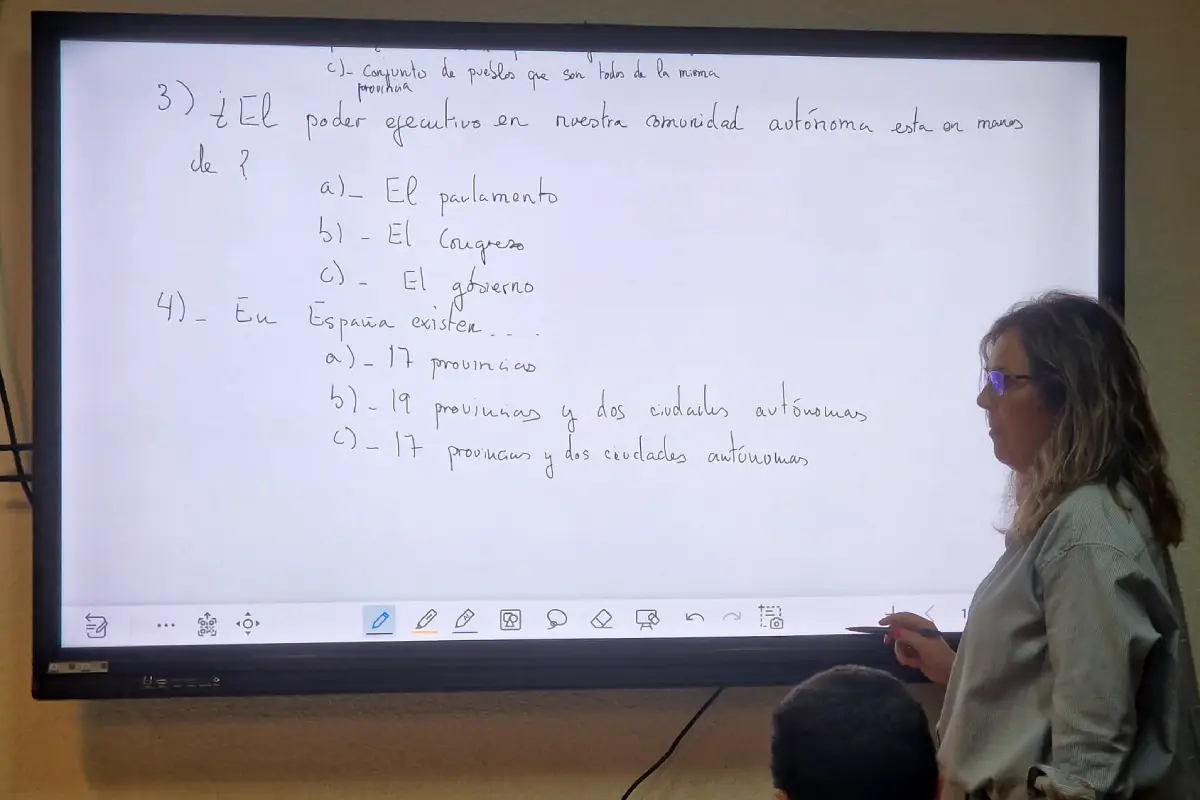 c)- Conjunto de pueblos que son todos de la misma
provincia
3) ¿El poder ejecutivo en nuestra comunidad autónoma esta en manos
de ?
a)- El parlamento
b) - El Congreso
c) - El gobierno
4)- En España existen....
a)- 17 provincias
b)- 19 provincias y dos ciudades autónomas
c)- 17 provincias y dos ciudades autónomas
1